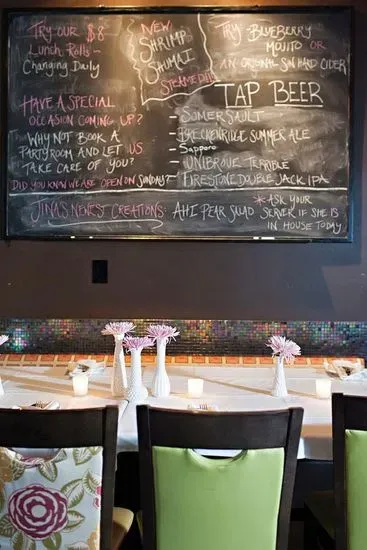 TRY OUR $8
LUNCH ROLLS -
CHANGING DAILY
NEW
SHRIMP
SHUMAI
STEAMED!!
TRY BLUEBERRY
MOJITO OR
AN ORIGINAL SIN HARD CIDER
HAVE A SPECIAL
OCCASION COMING UP?
WHY NOT BOOK A
PARTY ROOM AND LET US
TAKE CARE OF YOU?
DID YOU KNOW WE ARE OPEN ON SUNDAY?
TAP BEER
- SOMERSAULT
- BRECKENRIDGE SUMMER ALE
- SAPPORO
- UNIBROUE TERRIBLE
- FIRESTONE DOUBLE JACK IPA
JINA'S NEWEST CREATIONS: AHI PEAR SALAD
* ASK YOUR
SERVER IF SHE IS
IN HOUSE TODAY